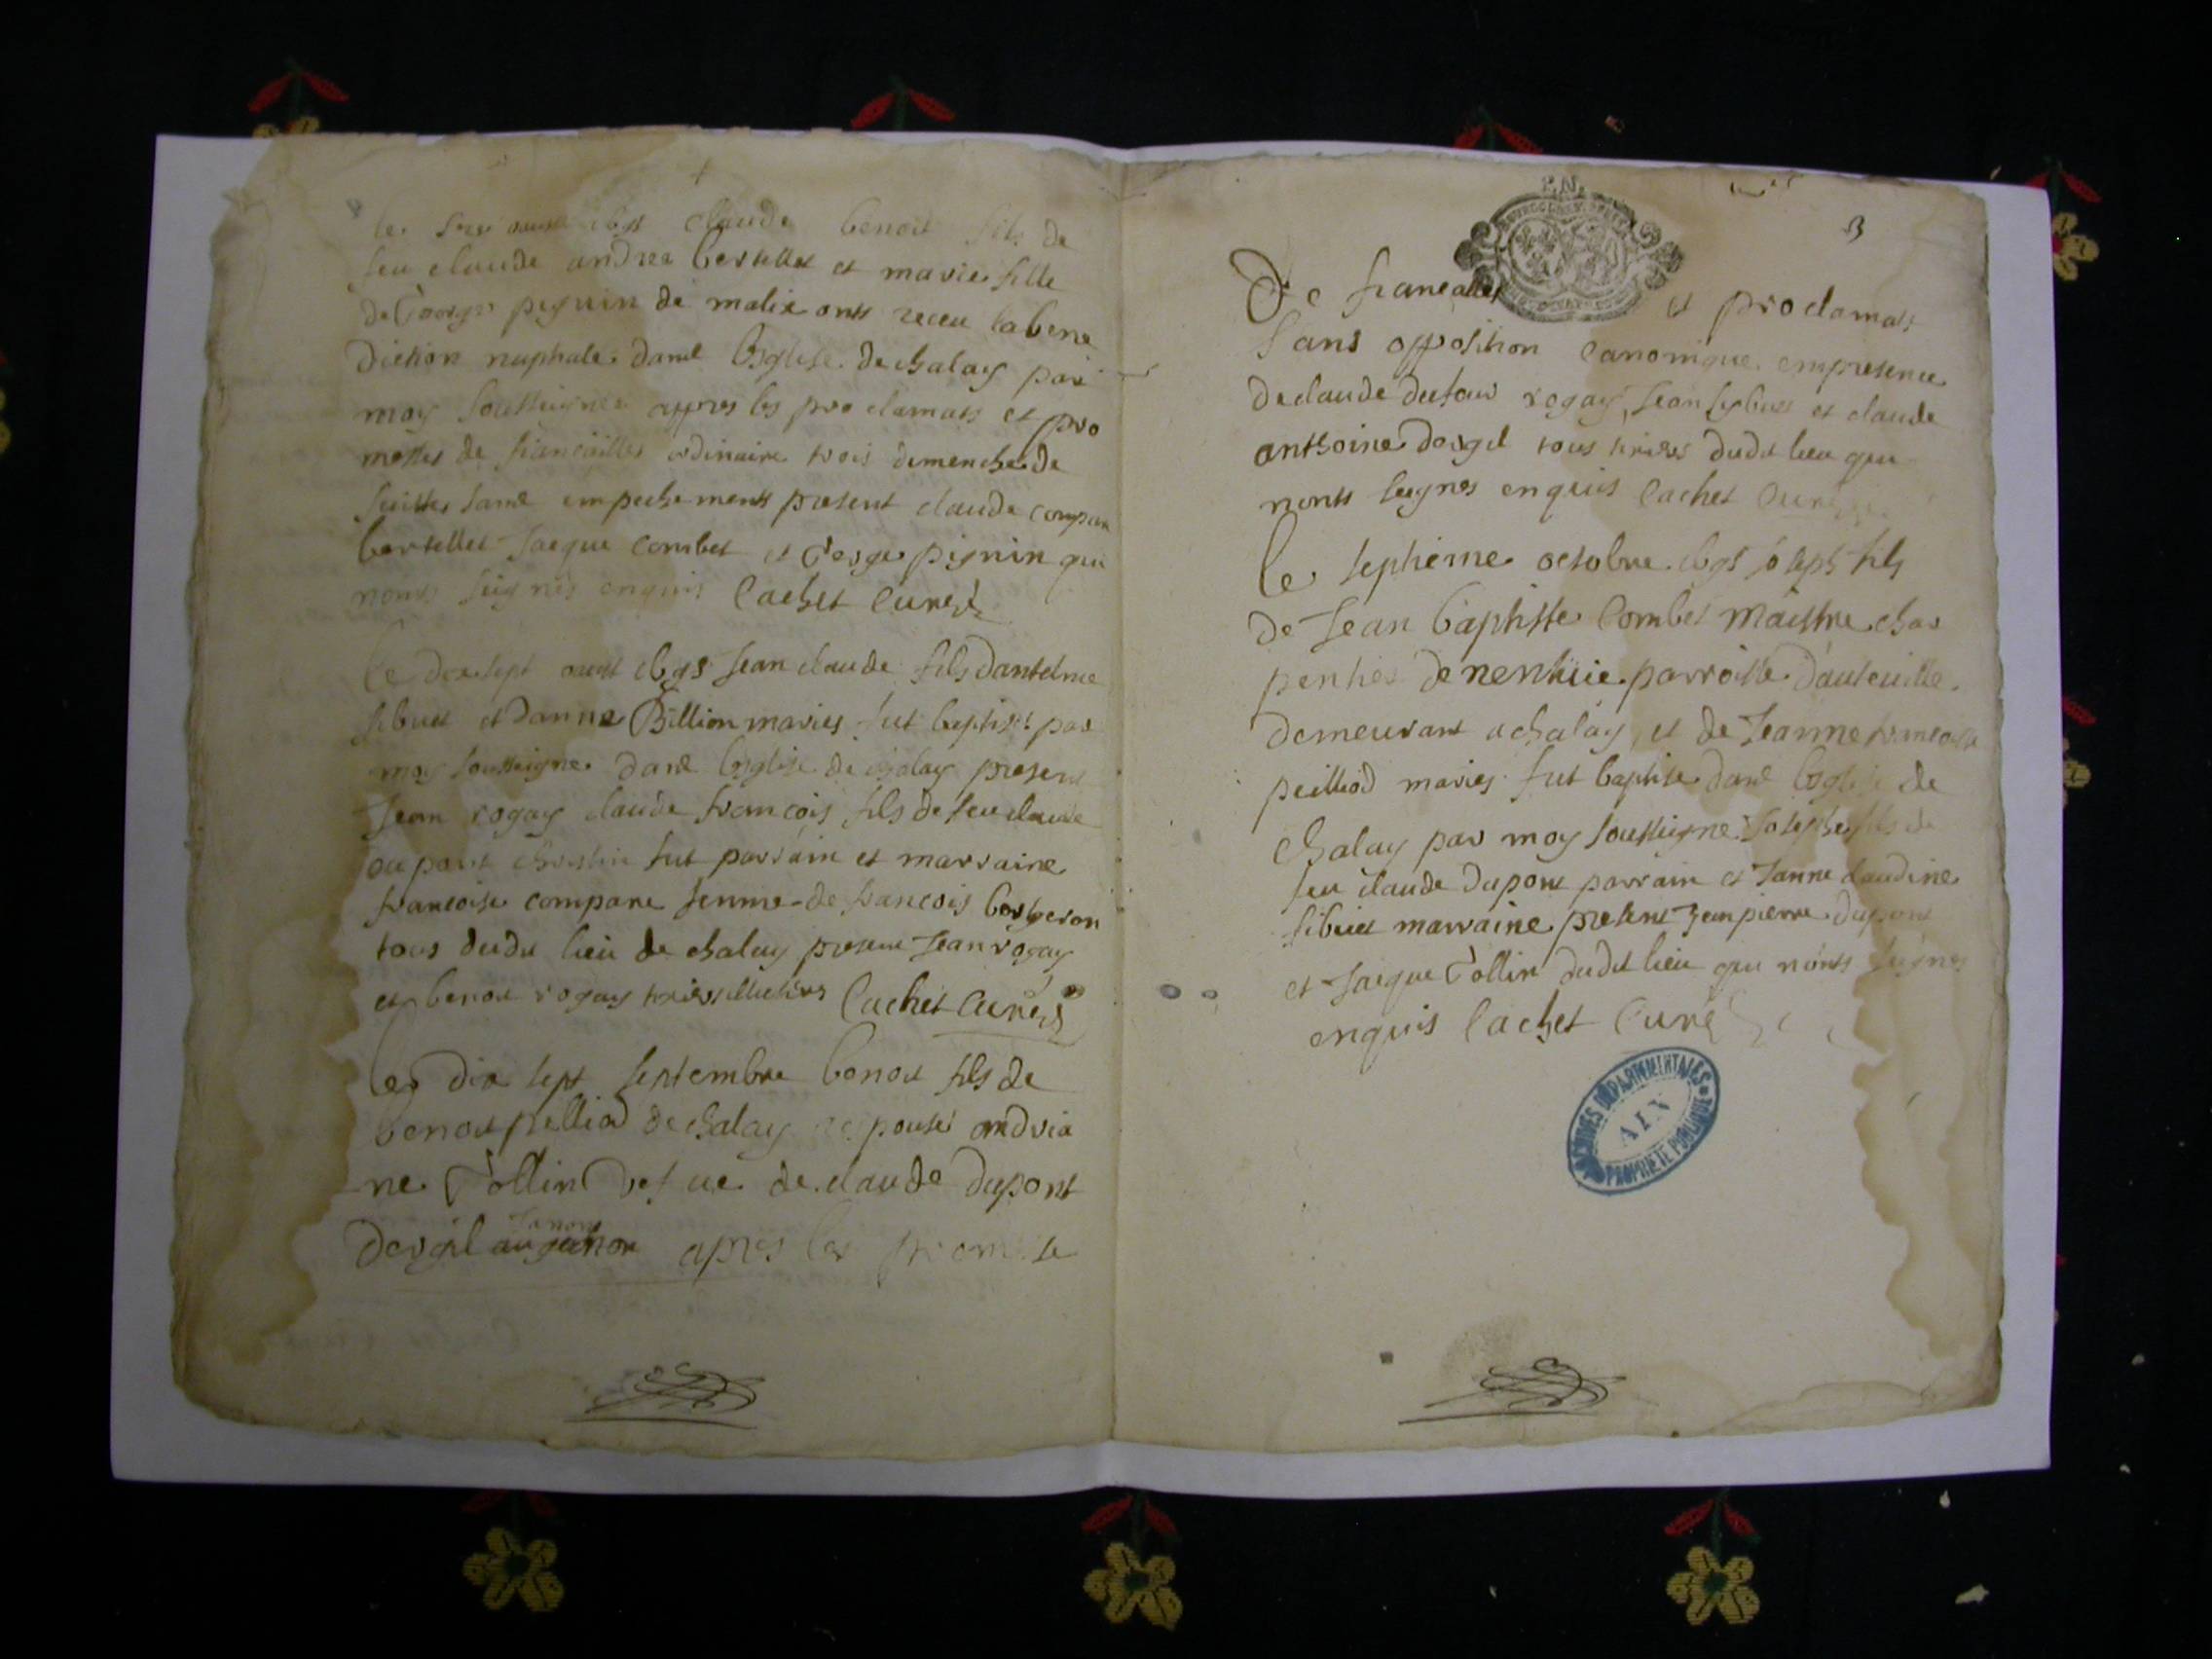 le aoust claude benoit fils de
feu claude andrea bertellet et marie fille
de George peguin de malix onts receu la bene
diction nuptiale dans l'église de chalay par
moy soussigné appres les proclamats et pro
messes de fiancailles ordinaire trois dimenche de
suitte sans empechements present claude compan
bertellet Jacque Combet et George pignin qui
nonts signés enquis Cachet Curé
le dix sept aoust Jean claude fils dantelme
sibuet et danne Billion maries fut baptisé par
moy soussigné dans l'église de chalay present
Jean rogay claude francois fils de feu claude
dupont fut parrain et marraine
francoise compane femme de francois bergeron
tous dudit lieu de chalay present Jean rogay
et benoit rogay Cachet Curé
le dix sept septembre benoit fils de
benoit pelliod de chalay espousé andria
ne Tollin vefue de claude dupont
apres les promesse
3
De fiancailles et proclamats
sans opposition canonique en presence
de claude dufour rogay, Jean sybuet et claude
anthoine dorgel tous dudit lieu qui
nonts signes enquis Cachet Curé
le septieme octobre Joseph fils
de Jean baptiste Combet maistre char
pentier de parroisse
demeurant a chalay, et de Jeanne francoise
peilliod maries fut baptise dans l'eglise de
chalay par moy soussigné Joseph fils de
feu claude dupont parrain et Janne claudine
sibuet marraine present Jean pierre dupont
et Jacque Tollin dudit lieu qui nonts signes
enquis Cachet Curé
ARCHIVES DÉPARTEMENTALES
AIN
PROPRIÉTÉ PUBLIQUE